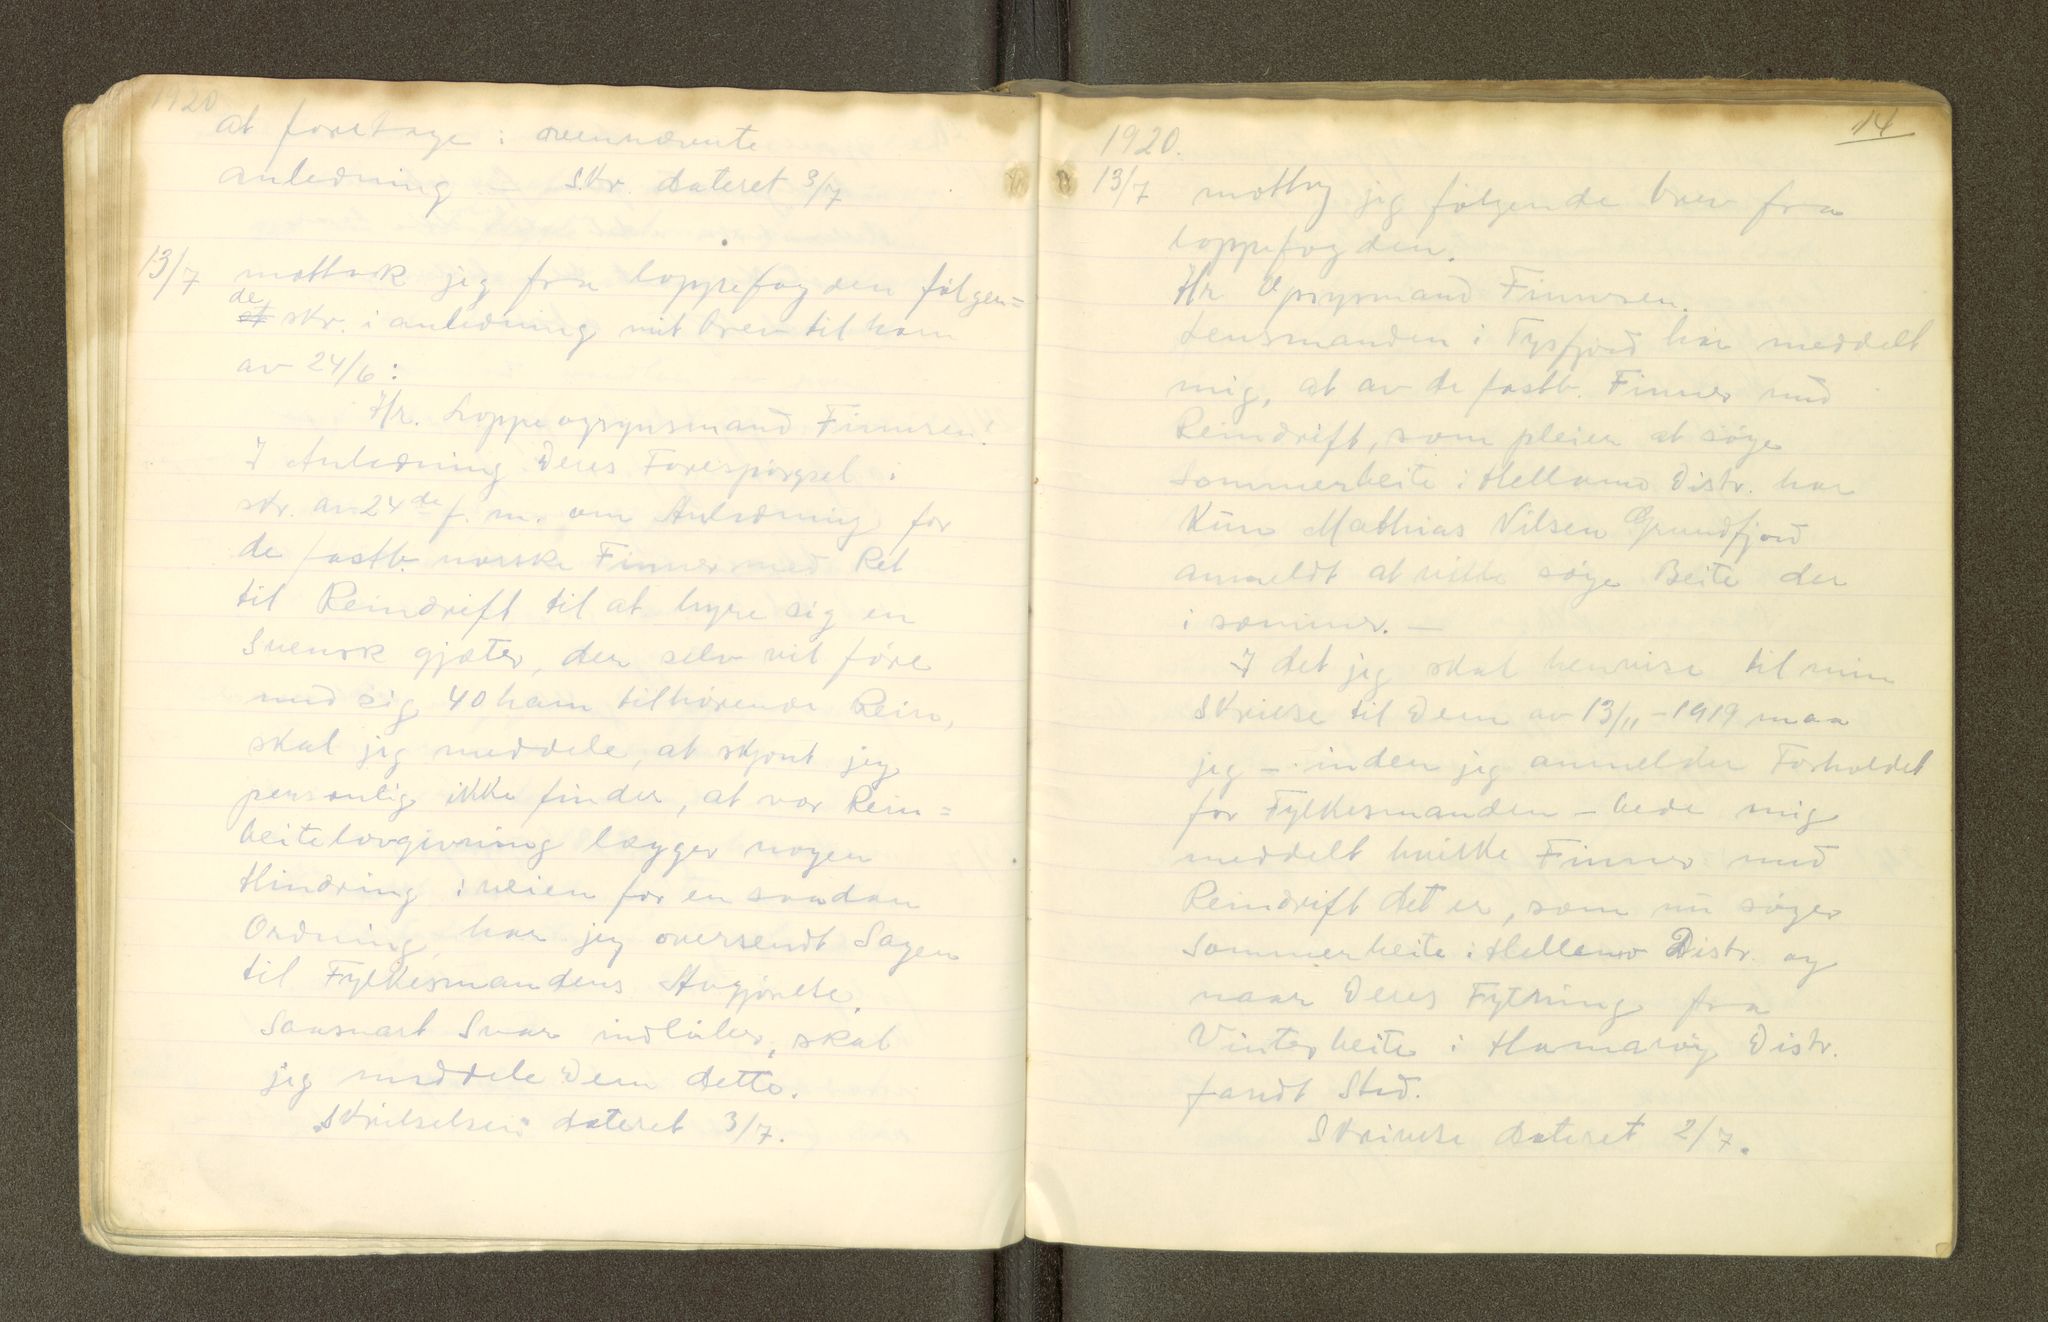 1920
at foretage i ovennævnte
anledning – Skr. dateret 3/7
13/7 mottok jeg fra lappefogden følgen=
de
et skr. i anledning mit brev til ham
av 24/6:
Hr. Lappeopsynsmand Finnesen!
I Anledning Deres Forespørgsel i
skr. av 24de f. m. om Anledning for
de fastb. norske Finner med Ret
til Reindrift til at hyre sig en
Svensk gjæter, der selv vil føre
med sig 40 ham tilhørende Rein,
skal jeg meddele, at skjønt jeg
personlig ikke finder, at vor Rein=
beitelovgivning lægger nogen
Hindring i veien for en saadan
Ordning, har jeg oversendt Sagen
til Fylkesmandens Avgjørelse.
Saasnart Svar indløber, skal
jeg meddele Dem dette.
Skrivelsen dateret 3/7.
14
1920.
13/7 mottog jeg følgende brev fra
lappefogden.
Hr Opsynsmand Finnesen.
Lensmanden i Tysfjord har meddelt
mig, at av de fastb. Finner med
Reindrift, som pleier at søge
Sommerbeite i Hellemo Distr. har
Kun Mathias Nilsen Grundfjord
anmeldt at ville søge Beite der
i sommer. –
I det jeg skal henvise til min
Skrivelse til Dem av 13/11 – 1919 maa
jeg – inden jeg anmelder Forholdet
for Fylkesmanden – bede mig
meddelt hvilke Finner med
Reindrift det er, som nu søger
Sommerbeite i Hellemo Distr. og
naar Deres Flytning fra
Vinterbeite i Hamarøy Distr.
fandt Sted.
Skrivelse dateret 2/7.